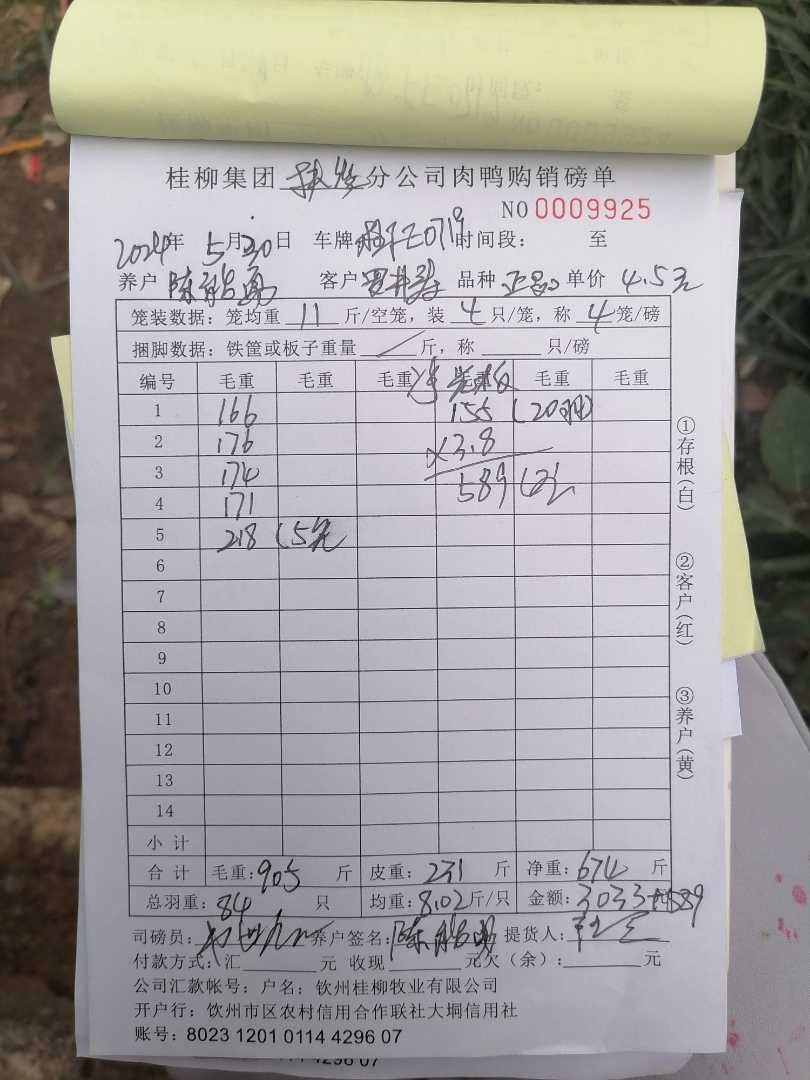 桂柳集团 分公司肉鸭购销磅单
NO 0009925
2024年 5月30日 车牌 0719 时间段： 至
养户 陈 勇 客户 品种 正品 单价 4.5元
笼装数据：笼均重 11 斤/空笼，装 4 只/笼，称 4 笼/磅
捆脚数据：铁筐或板子重量 / 斤，称 只/磅
编号 毛重 毛重 毛重 毛重 毛重 毛重
1 166 155 (20羽)
2 176 ×3.8
3 174
4 171 589
5 218 (5笼
6
7
8
9
10
11
12
13
14
小 计
合 计 毛重：905 斤 皮重：231 斤 净重：674 斤
总羽重：84 只 均重：8.02斤/只 金额：3033+589
司磅员： 养户签名：陈 勇 提货人：
付款方式：汇 元 收现 元欠（余）： 元
公司汇款帐号：户名：钦州桂柳牧业有限公司
开户行：钦州市区农村信用合作联社大垌信用社
账号：8023 1201 0114 4296 07
①存根(白)
②客户(红)
③养户(黄)